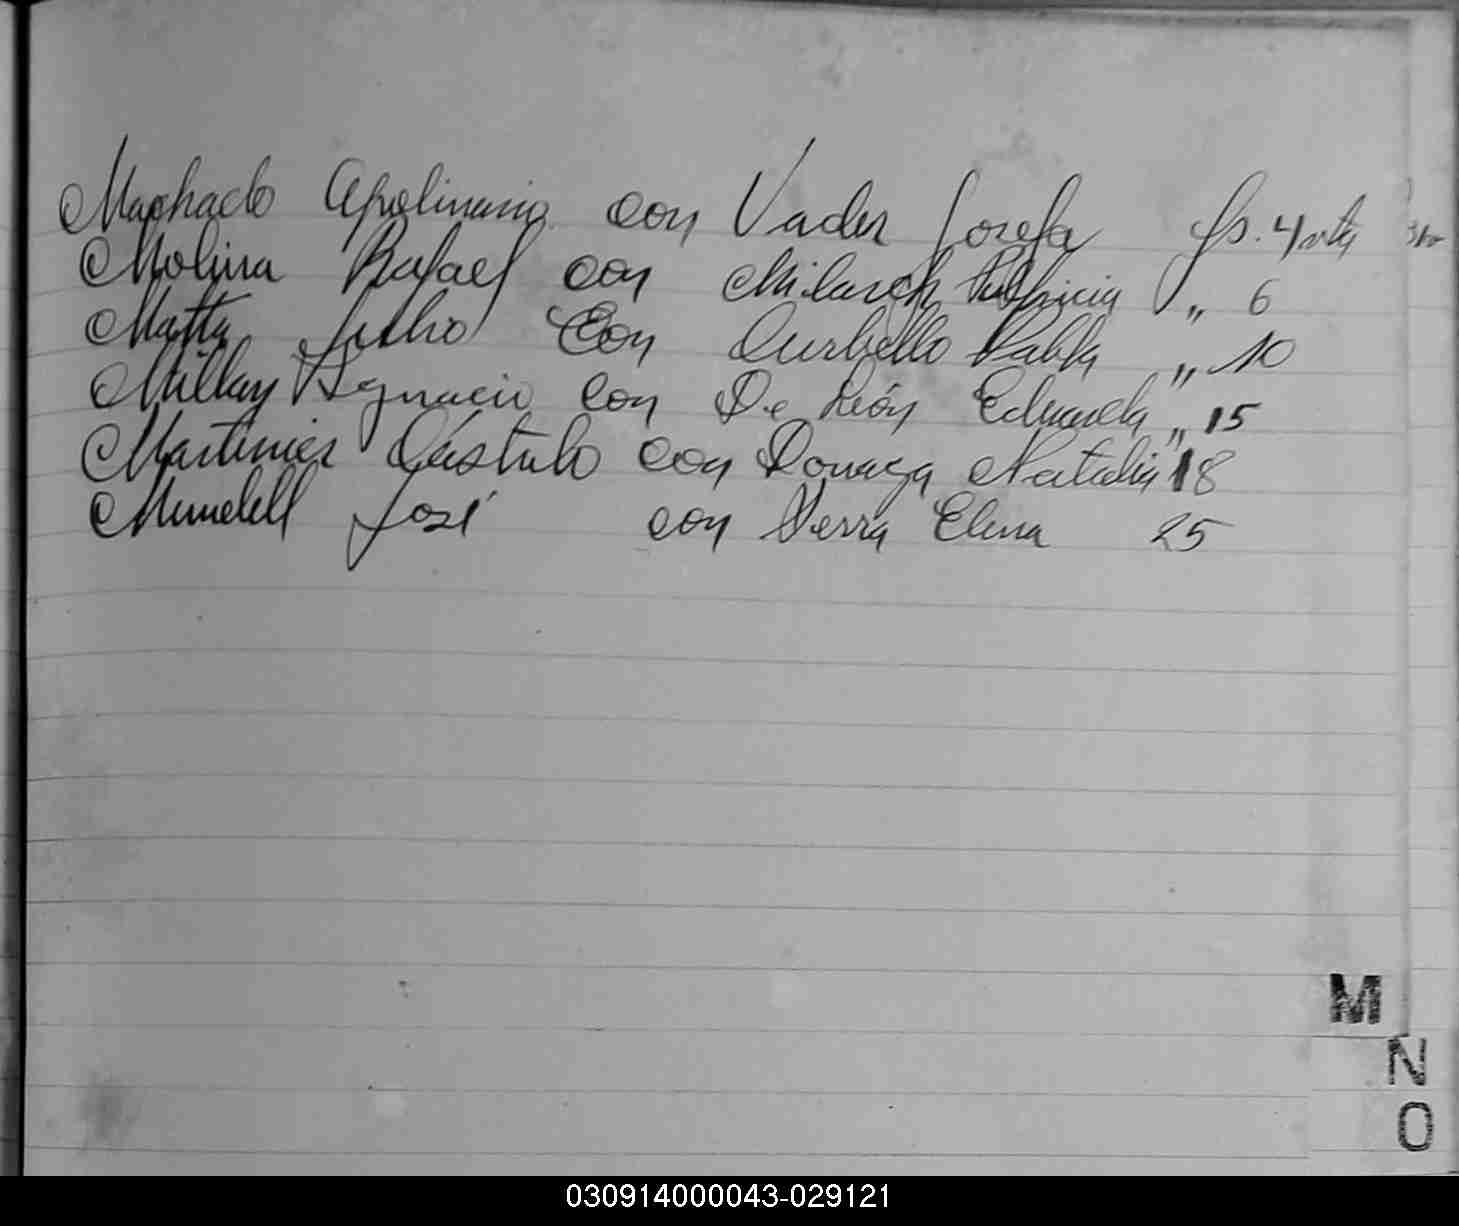 Machado Apolinario con Vader Josefa fs. 4 vta
Molina Rafael con Milarch Patricia " 6
Matta Julio Con Curbello Pabla " 10
Millan Ygnacio Con De León Eduarda " 15
Martinier Cástulo con Donaza Natalia 18
Mundell José con Sierra Elena 25
M
N
O
030914000043-029121